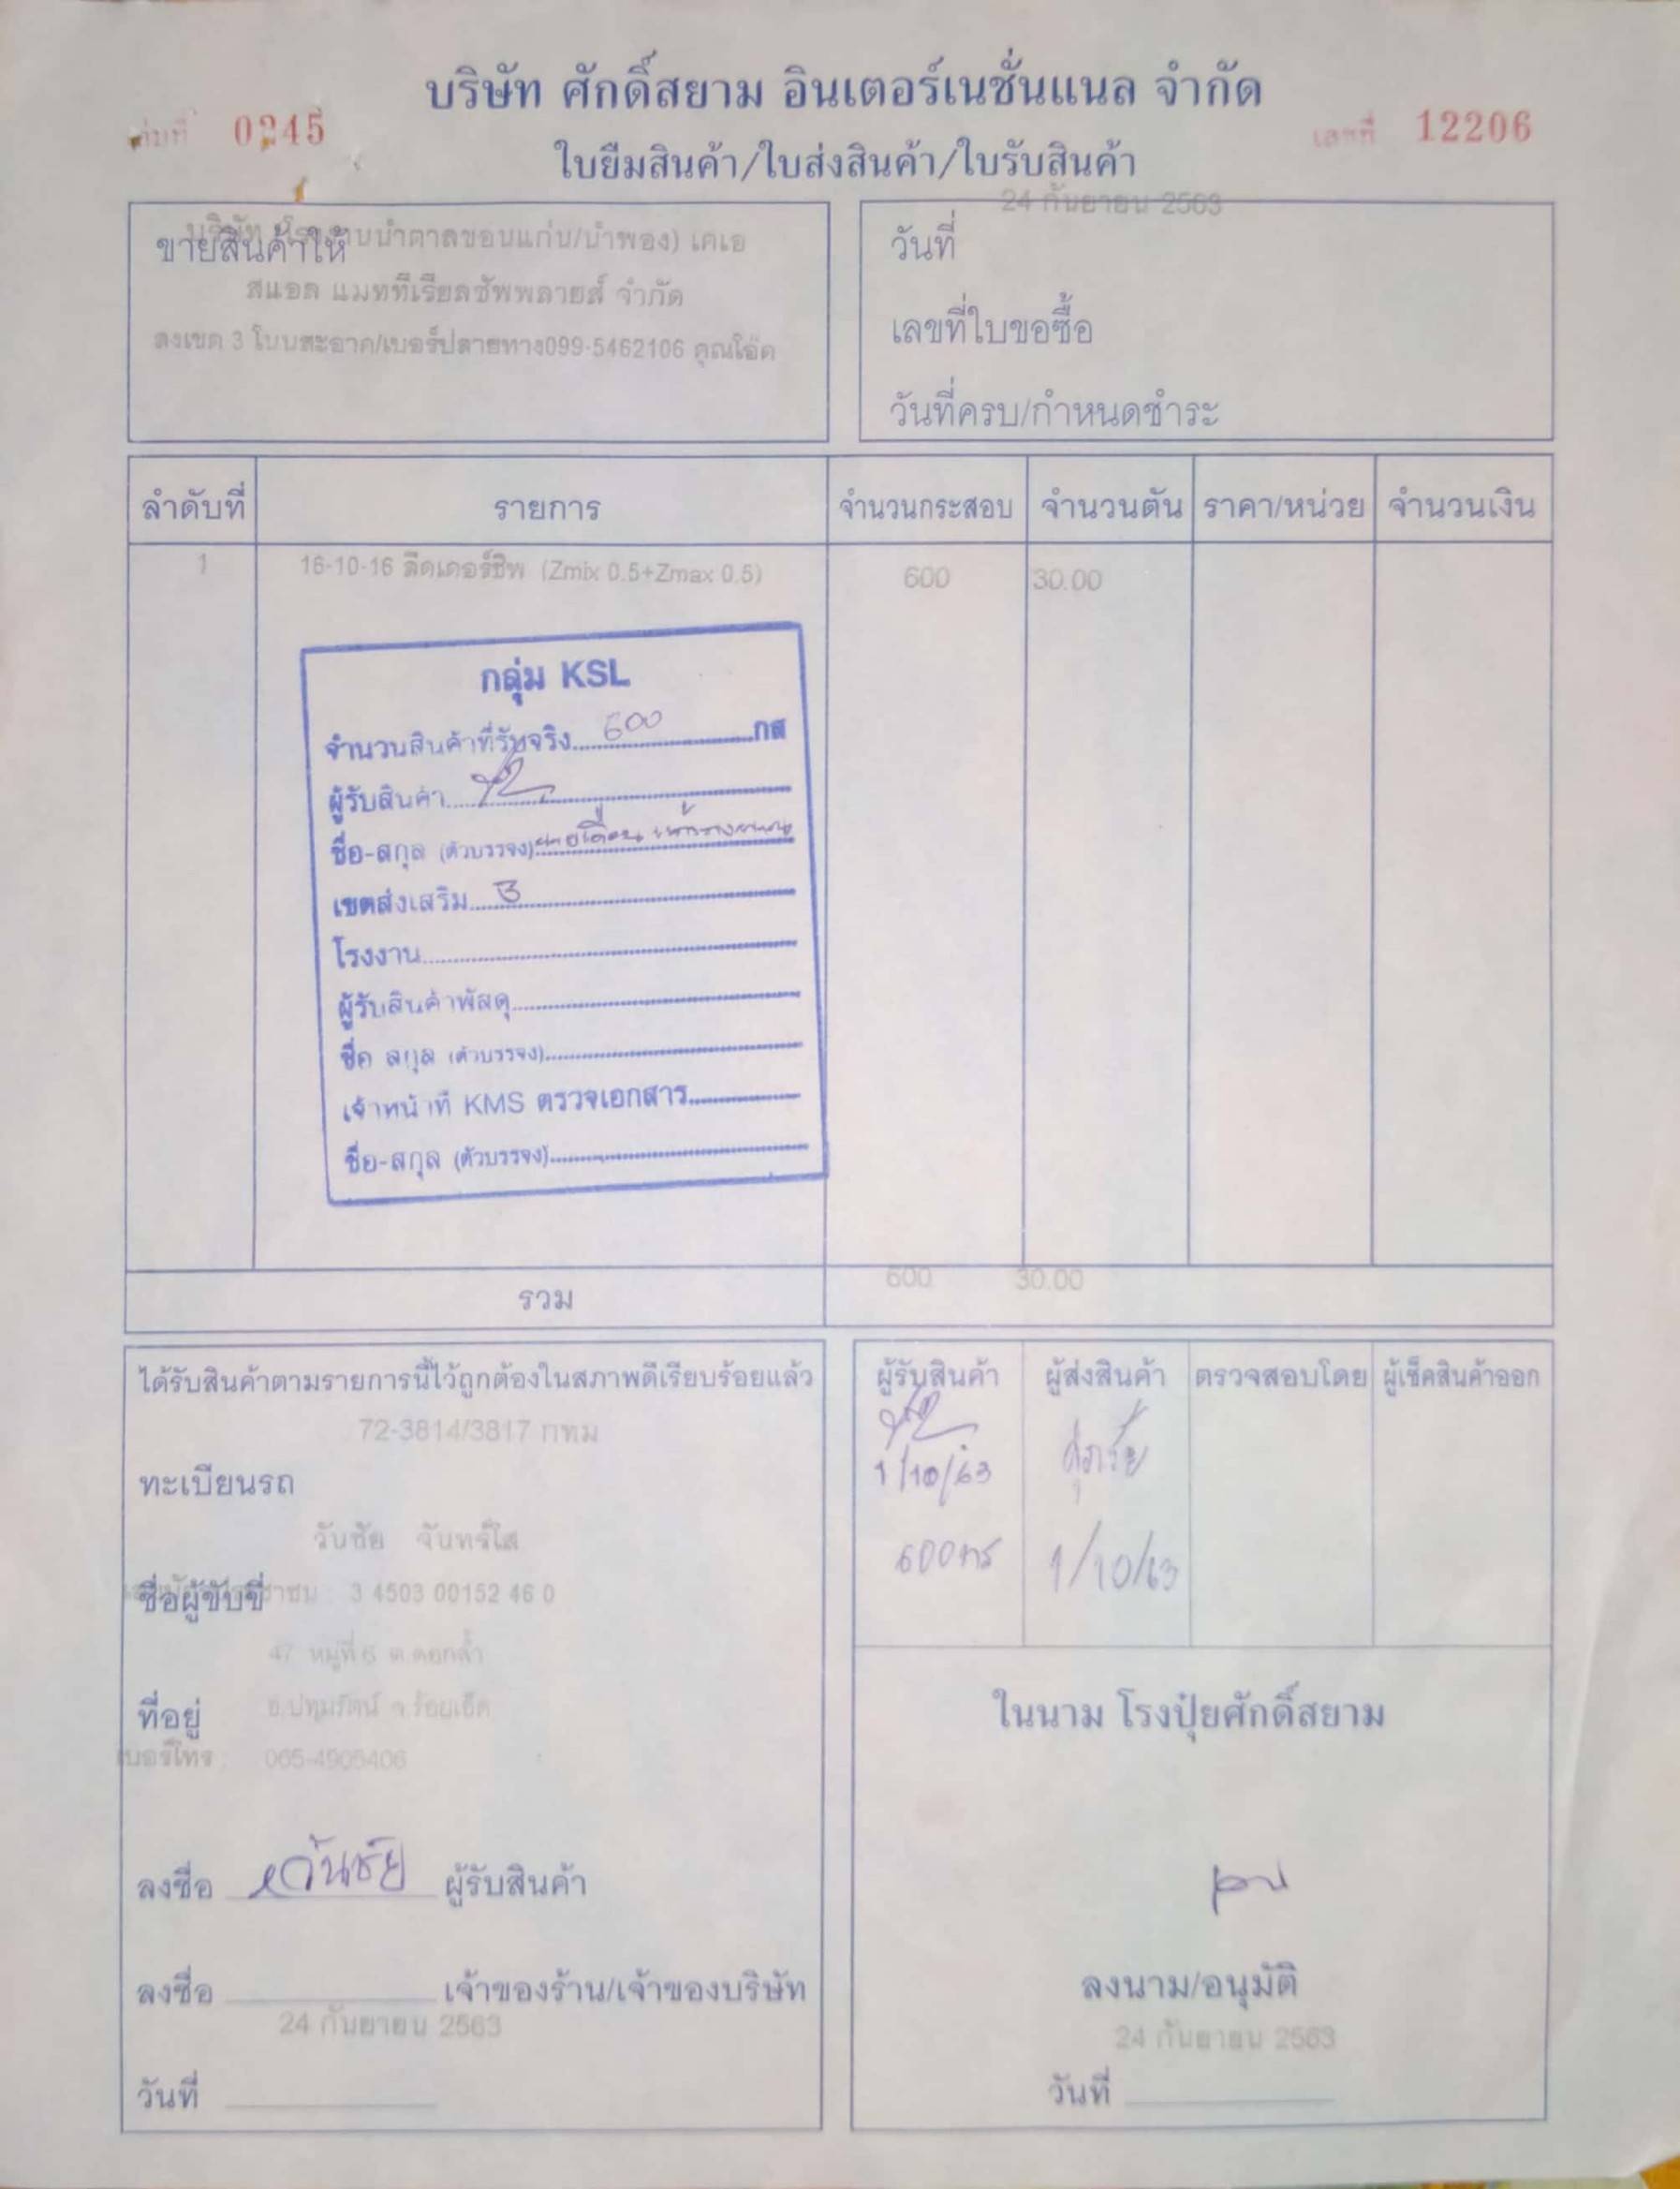 บริษัท ศักดิ์สยาม อินเตอร์เนชั่นแนล จำกัด
เล่มที่ 0245
เลขที่ 12206
ใบยืมสินค้า/ใบส่งสินค้า/ใบรับสินค้า
24 กันยายน 2563
ขายสินค้าให้
บริษัท (โรงงานน้ำตาลขอนแก่น/น้ำพอง) เคเอ
สแอล แมททีเรียลซัพพลายส์ จำกัด
ลงเขต 3 โนนสะอาด/เบอร์ปลายทาง099-5462106 คุณโอ๊ต
วันที่
เลขที่ใบขอซื้อ
วันที่ครบ/กำหนดชำระ
ลำดับที่ รายการ จำนวนกระสอบ จำนวนตัน ราคา/หน่วย จำนวนเงิน
1 16-10-16 ลีดเดอร์ชิพ (Zmix 0.5+Zmax 0.5) 600 30.00
กลุ่ม KSL
จำนวนสินค้าที่รับจริง 600 กส
ผู้รับสินค้า
ชื่อ-สกุล (ตัวบรรจง)
เขตส่งเสริม 3
โรงงาน
ผู้รับสินค้าพัสดุ
ชื่อ สกุล (ตัวบรรจง)
เจ้าหน้าที่ KMS ตรวจเอกสาร
ชื่อ-สกุล (ตัวบรรจง)
รวม 600 30.00
ได้รับสินค้าตามรายการนี้ไว้ถูกต้องในสภาพดีเรียบร้อยแล้ว
72-3814/3817 กทม
ทะเบียนรถ
วันชัย จันทร์ใส
ชื่อผู้ขับขี่
เลขบัตรประชาชน 3 4503 00152 46 0
47 หมู่ที่ 6 ต.ดอกล้ำ
ที่อยู่ อ.ปทุมรัตน์ จ.ร้อยเอ็ด
เบอร์โทร : 065-4905406
ลงชื่อ วันชัย ผู้รับสินค้า
ลงชื่อ เจ้าของร้าน/เจ้าของบริษัท
24 กันยายน 2563
วันที่
ผู้รับสินค้า ผู้ส่งสินค้า ตรวจสอบโดย ผู้เช็คสินค้าออก
1/10/63
600 กส 1/10/63
ในนาม โรงปุ๋ยศักดิ์สยาม
ลงนาม/อนุมัติ
24 กันยายน 2563
วันที่